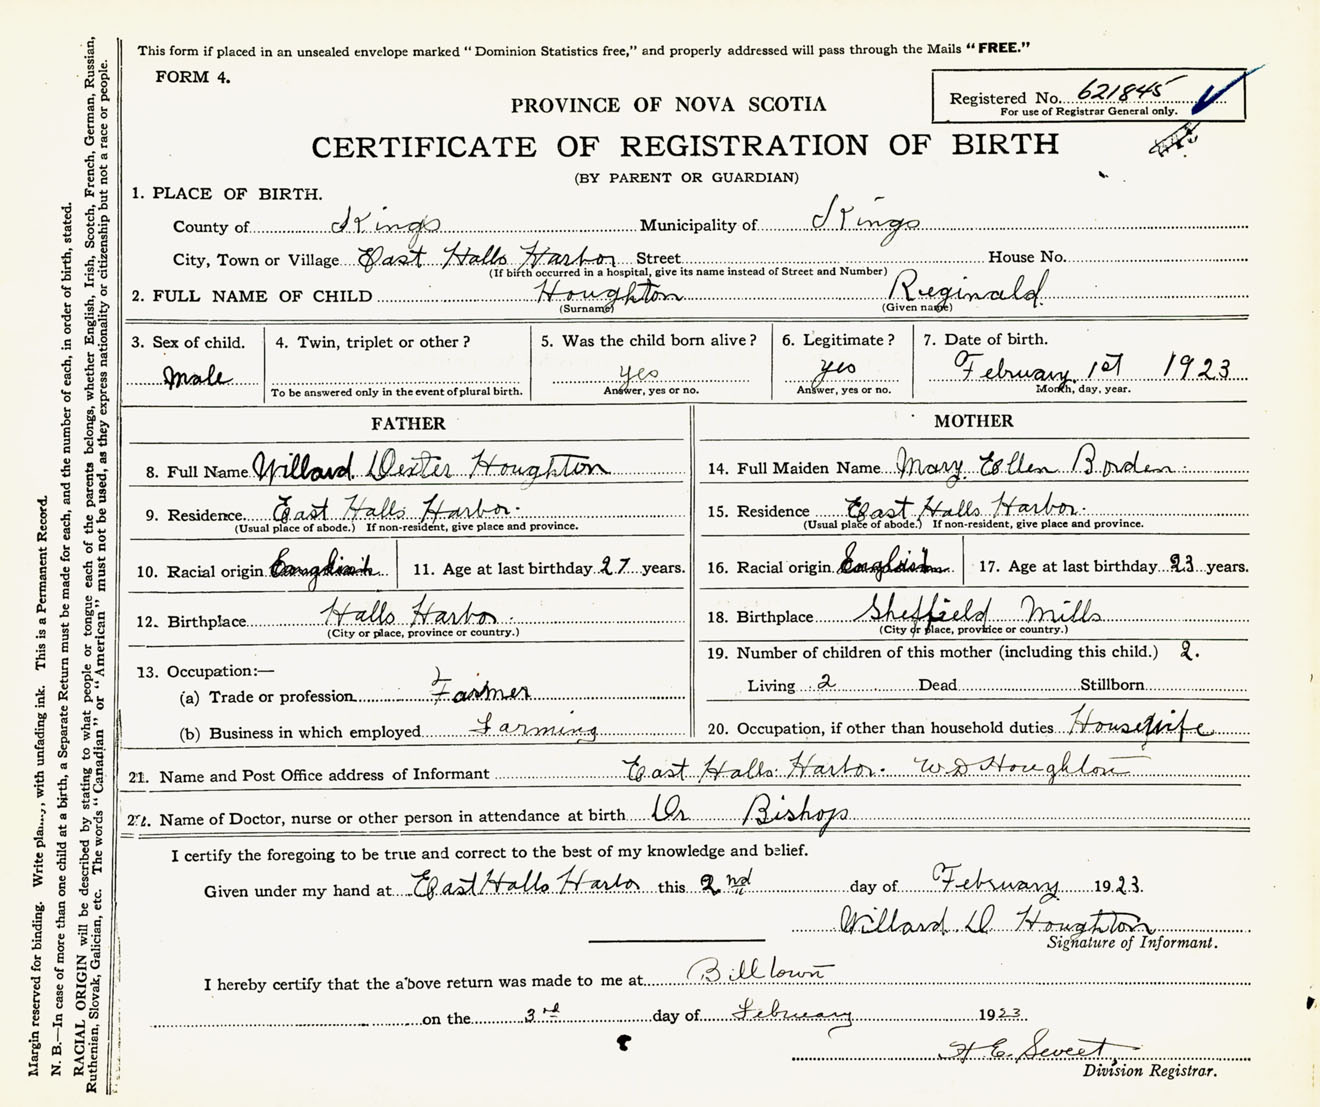 This form if placed in an unsealed envelope marked "Dominion Statistics free," and properly addressed will pass through the Mails "FREE."
FORM 4.
Registered No. 621845
For use of Registrar General only.
PROVINCE OF NOVA SCOTIA
CERTIFICATE OF REGISTRATION OF BIRTH
(BY PARENT OR GUARDIAN)
1. PLACE OF BIRTH.
County of Kings Municipality of Kings
City, Town or Village East Halls Harbor Street House No.
(If birth occurred in a hospital, give its name instead of Street and Number)
2. FULL NAME OF CHILD Houghton Reginald
(Surname) (Given name)
3. Sex of child. 4. Twin, triplet or other? 5. Was the child born alive? 6. Legitimate? 7. Date of birth.
Male yes yes February 1st 1923
To be answered only in the event of plural birth. Answer, yes or no. Answer, yes or no. Month, day, year.
FATHER MOTHER
8. Full Name Willard Dexter Houghton 14. Full Maiden Name Mary Ellen Borden
9. Residence East Halls Harbor. 15. Residence East Halls Harbor.
(Usual place of abode.) If non-resident, give place and province. (Usual place of abode.) If non-resident, give place and province.
10. Racial origin English 11. Age at last birthday 27 years. 16. Racial origin English 17. Age at last birthday 23 years.
12. Birthplace Halls Harbor. 18. Birthplace Sheffield Mills
(City or place, province or country.) (City or place, province or country.)
13. Occupation:— 19. Number of children of this mother (including this child.) 2.
(a) Trade or profession Farmer Living 2 Dead Stillborn
(b) Business in which employed Farming 20. Occupation, if other than household duties Housewife
21. Name and Post Office address of Informant East Halls Harbor. W D Houghton
22. Name of Doctor, nurse or other person in attendance at birth Dr Bishop
I certify the foregoing to be true and correct to the best of my knowledge and belief.
Given under my hand at East Halls Harbor this 2nd day of February 1923.
Willard D Houghton
Signature of Informant.
I hereby certify that the above return was made to me at Billtown
on the 3rd day of February 1923
H. E. Sweet
Division Registrar.
Margin reserved for binding. Write plainly, with unfading ink. This is a Permanent Record.
N. B.—In case of more than one child at a birth, a Separate Return must be made for each, and the number of each, in order of birth, stated.
RACIAL ORIGIN will be described by stating to what people or tongue each of the parents belongs, whether English, Irish, Scotch, French, German, Russian,
Ruthenian, Slovak, Galician, etc. The words "Canadian" or "American" must not be used, as they express nationality or citizenship but not a race or people.